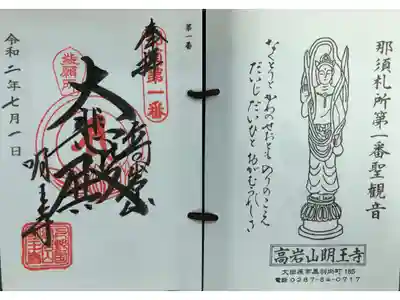 那須札所第一番聖観音
なくとりも かのせせとも のりのこえ
だいじ だいひと おがむうれしさ
高岩山明王寺
大田原市黒羽向町 185
電話 0287-54-0717
第一番
奉拝
第一番
祈願所
大悲殿
明王寺
令和二年七月一日